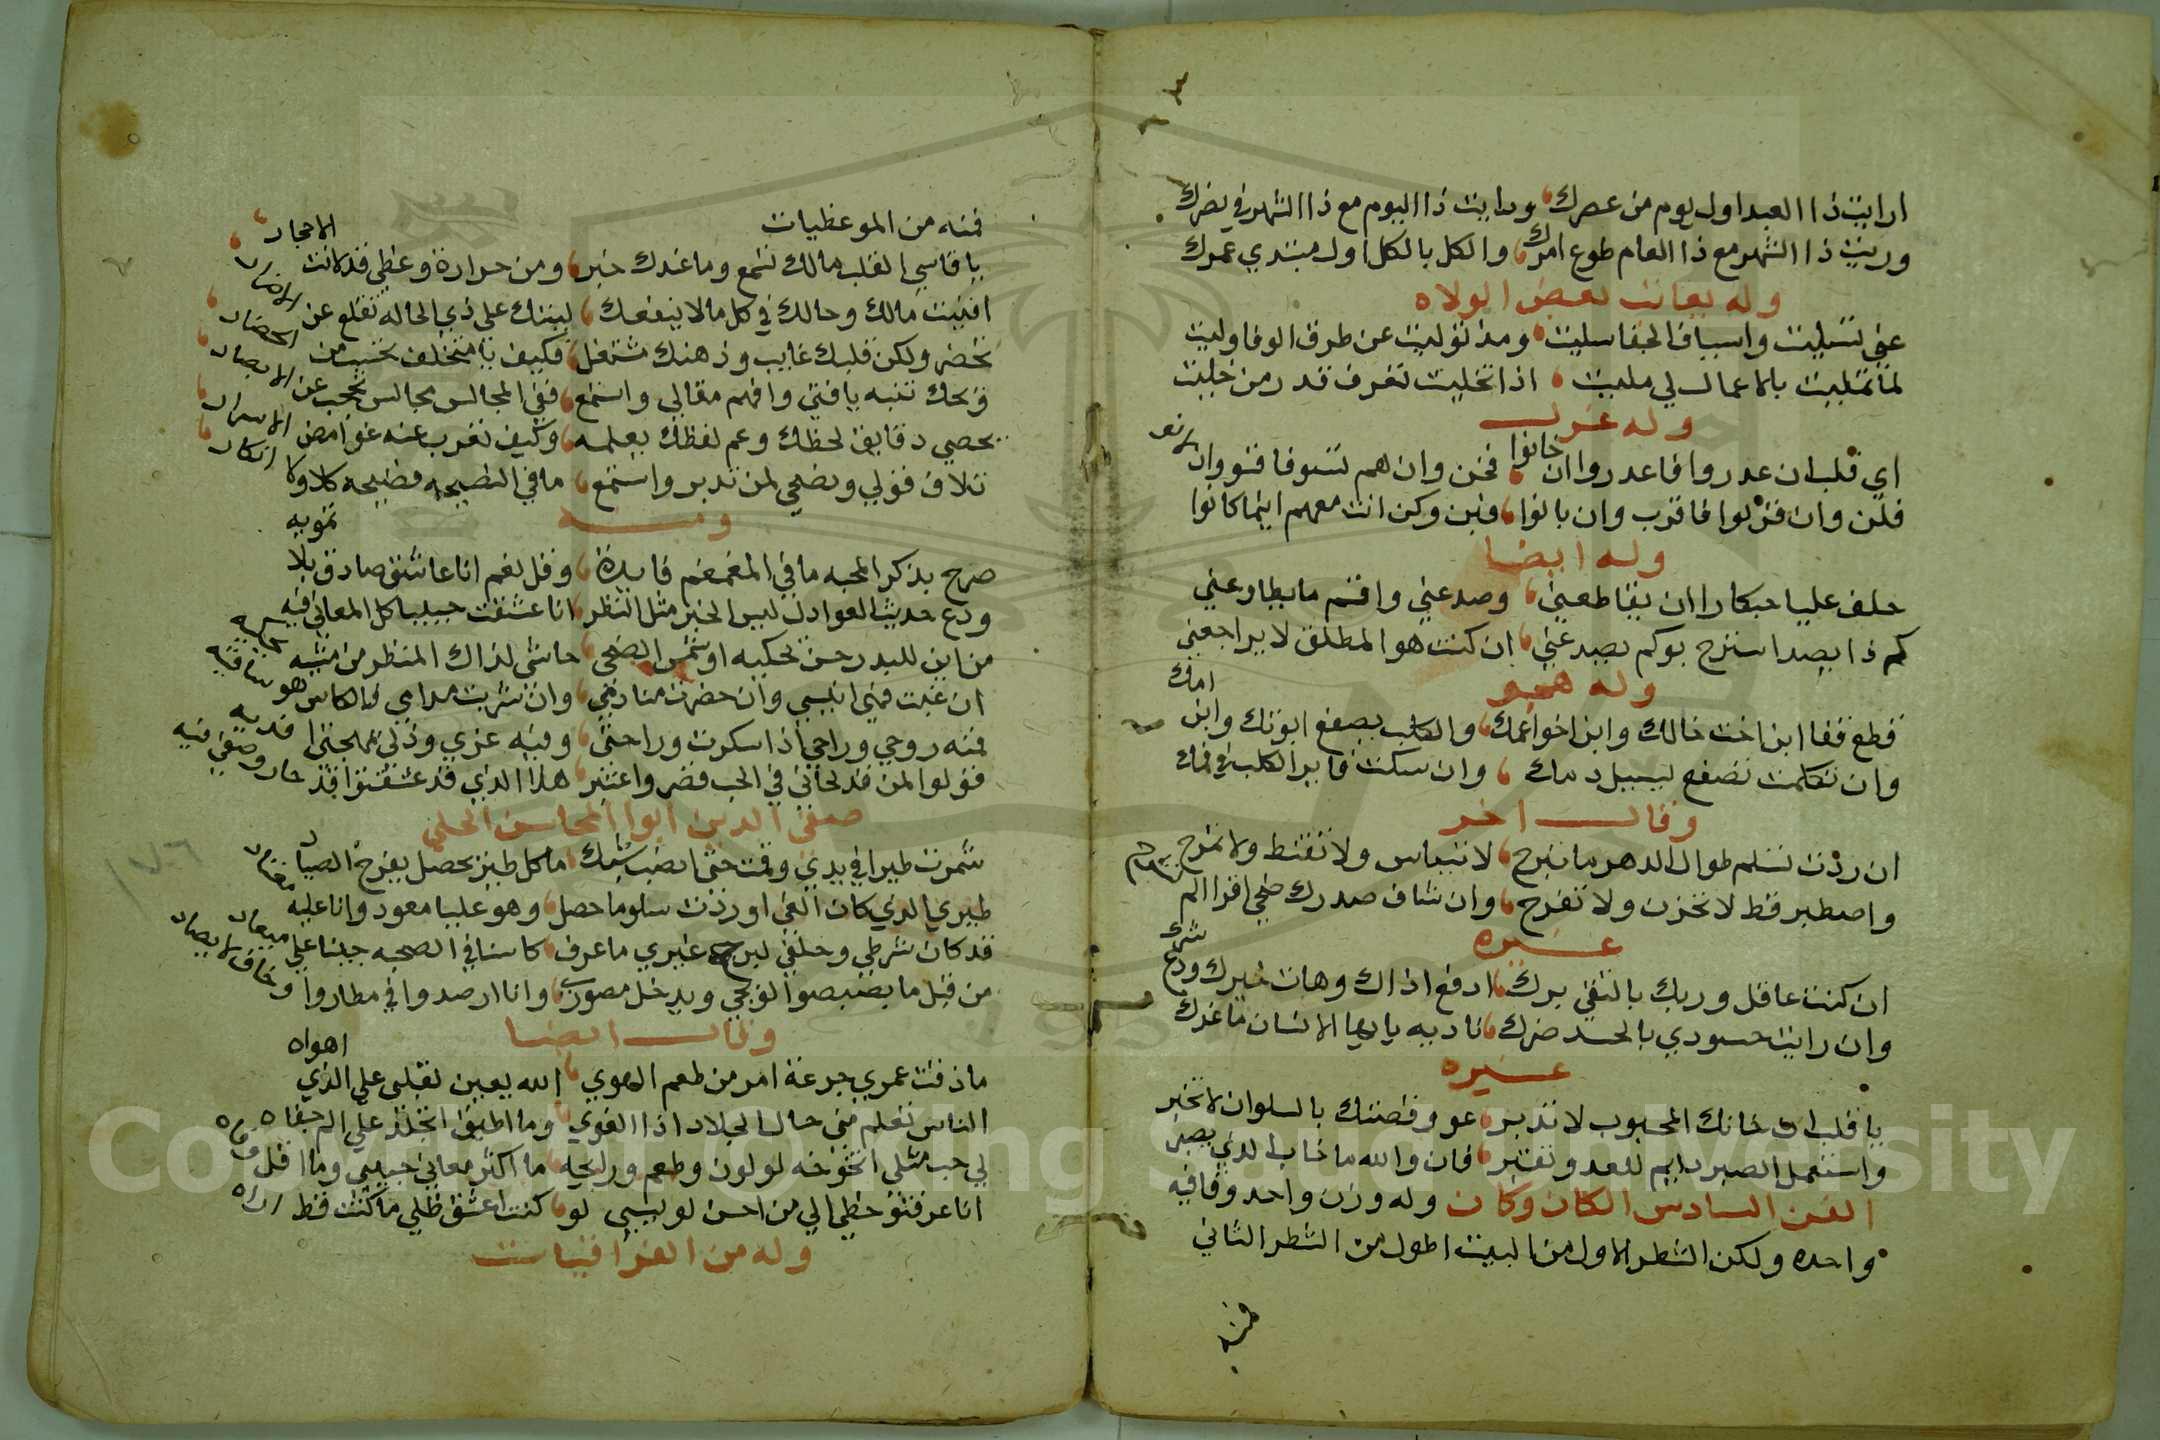 ارايت ذا العيد اول يوم من عصرك ورايت ذا اليوم مع ذا الشهر في نصرك
وريت ذا الشهر مع ذا العام طوع امرك والكل بالكل اول مبتدي عمرك
وله يعاتب بعض الولاه
عني تسليت واسياف الجفا سليت ومذ توليت عن طرق الوفا وليت
لما تمليت بالاعمال لي مليت اذا تخليت تعرف قدر من خليت
وله غزل
اي قلب ان غدروا فاغدر وان خانوا فخن وان هم نسوا فانسو وان لانو
فلن وان قربوا فاقرب وان بانوا فبن وكن انت معهم اينما كانوا
وله ايضا
حلف عليا حبكارا ان يقاطعني وصد عني واقسم ما يطاوعني
كم ذا يصد استرح بوكم يصد عني ان كنت هو المطلق لا يراجعني
وله هجو
قطع قفا ابن اخت خالك وابن اخو اعمك والكلب يصفع ابوتك وابن امك
وان تكلمت تصفع ليسيل دمك وان سكت فايرا الكلب في فمك
وقال اخر
ان ردت تسلم طوال الدهر ما تبرح لا تيياس ولا تقنط ولا تمرح
واصطبر قط لا تحزن ولا تفرح وان ضاق صدرك ضحي اقرا الم نشرح
غيره
ان كنت عاقل وربك بالتقي برك ادفع اذاك وهات خيرك ودع شرك
وان رايت حسودي بالحسد ضرك ناديه يا ايها الانسان ما غرك
غيره
يا قلب ان خانك المحبوب لا تدبر عو وقصتك بالسلوان لا تخبر
واستعمل الصبر دايم للعد وتقتبر فان والله ما خاب الذي يصبر
الفن السادس الكان وكان وله وزن واحد وقافيه
واحده ولكن الشطر الاول من البيت اطول من الشطر الثاني
فمنه
فمنه من الموعظيات
يا قاسي القلب مالك تسمع وما عندك خبر ومن حرارة وعظي قد لانت الاحجار
افنيت مالك وحالك في كل ما لا ينفعك ليتك على ذي الحاله تقلع عن الاصرار
تحضر ولكن قلبك غايب وذهنك مشتغل فكيف يا متخلف تحتسب من الحضار
ويحك تنبه يا فتي وافهم مقالي واستمع ففي المجالس مجالس تحجب عن الابصار
يحصي دقايق لحظك وعم لفظك بعلمه وكيف تغرب عنه غوامض الاسرار
تلاف قولي ونصحي لمن تدبر واستمع ما في النصيحه فضيحه كلا ولا انكار
ومنه
صرح بذكر المحبه ما في المغمغم فايدة وقل نعم انا عاشق صادق بلا تمويه
ودع حديث العوادل ليس الخبر مثل النظر انا عشقت حبيب كل المعاني فيه
من اين للبدر حسن يحكيه او شمس الضحي حاشي لذاك المنظر من مشبه تحكيه
ان غبت فهني انيسي وان حضرت منادمي وان شربت مدامي فالكاس هو ساقيه
فمنه روحي وراحي اذا سكرت وراحتي وفيه عزي وذلي بمهجتي افديه
قولوا لمن قد لحاني في الحب قصر واعتبر هذا الذي قد عشقتوا قد حار وصفي فيه
صفي الدين ابو المحاسن الحلي
شمرت طير في يدي وقمت حتى انصب شبك ما كل طير يحصل بفرح الصياد
طيري الذي كان الفي اوردت سلو ما حصل وهو عليا معود وانا عليه معتاد
قد كان شرطي وحلفي لبرج غيري ما عرف كاسنا في الصحبه جينا علي ميعاد
من قبل ما بصبصوا لو يجي ويدخل مصورب وانا ارصدوا في مطاروا وخاف لا يصطاد
وقال ايضا
ماذقت عمري جرعة امر من طعم الهوي الله يعين لقلبي علي الذي اهواه
الناس تعلم مني حال الجلاد اذا القوي وما اطيق اتجلد علي الم جفاه
لي حب مثلي اتخوخه لو لون وطعم ورايحه ما اكثر معاني حبيبي وما اقل وفاه
انا عرفتو حظي الي من احسن لو يسي لو كنت اعشق ظلي ما كنت قط اراه
وله من الفراقيات